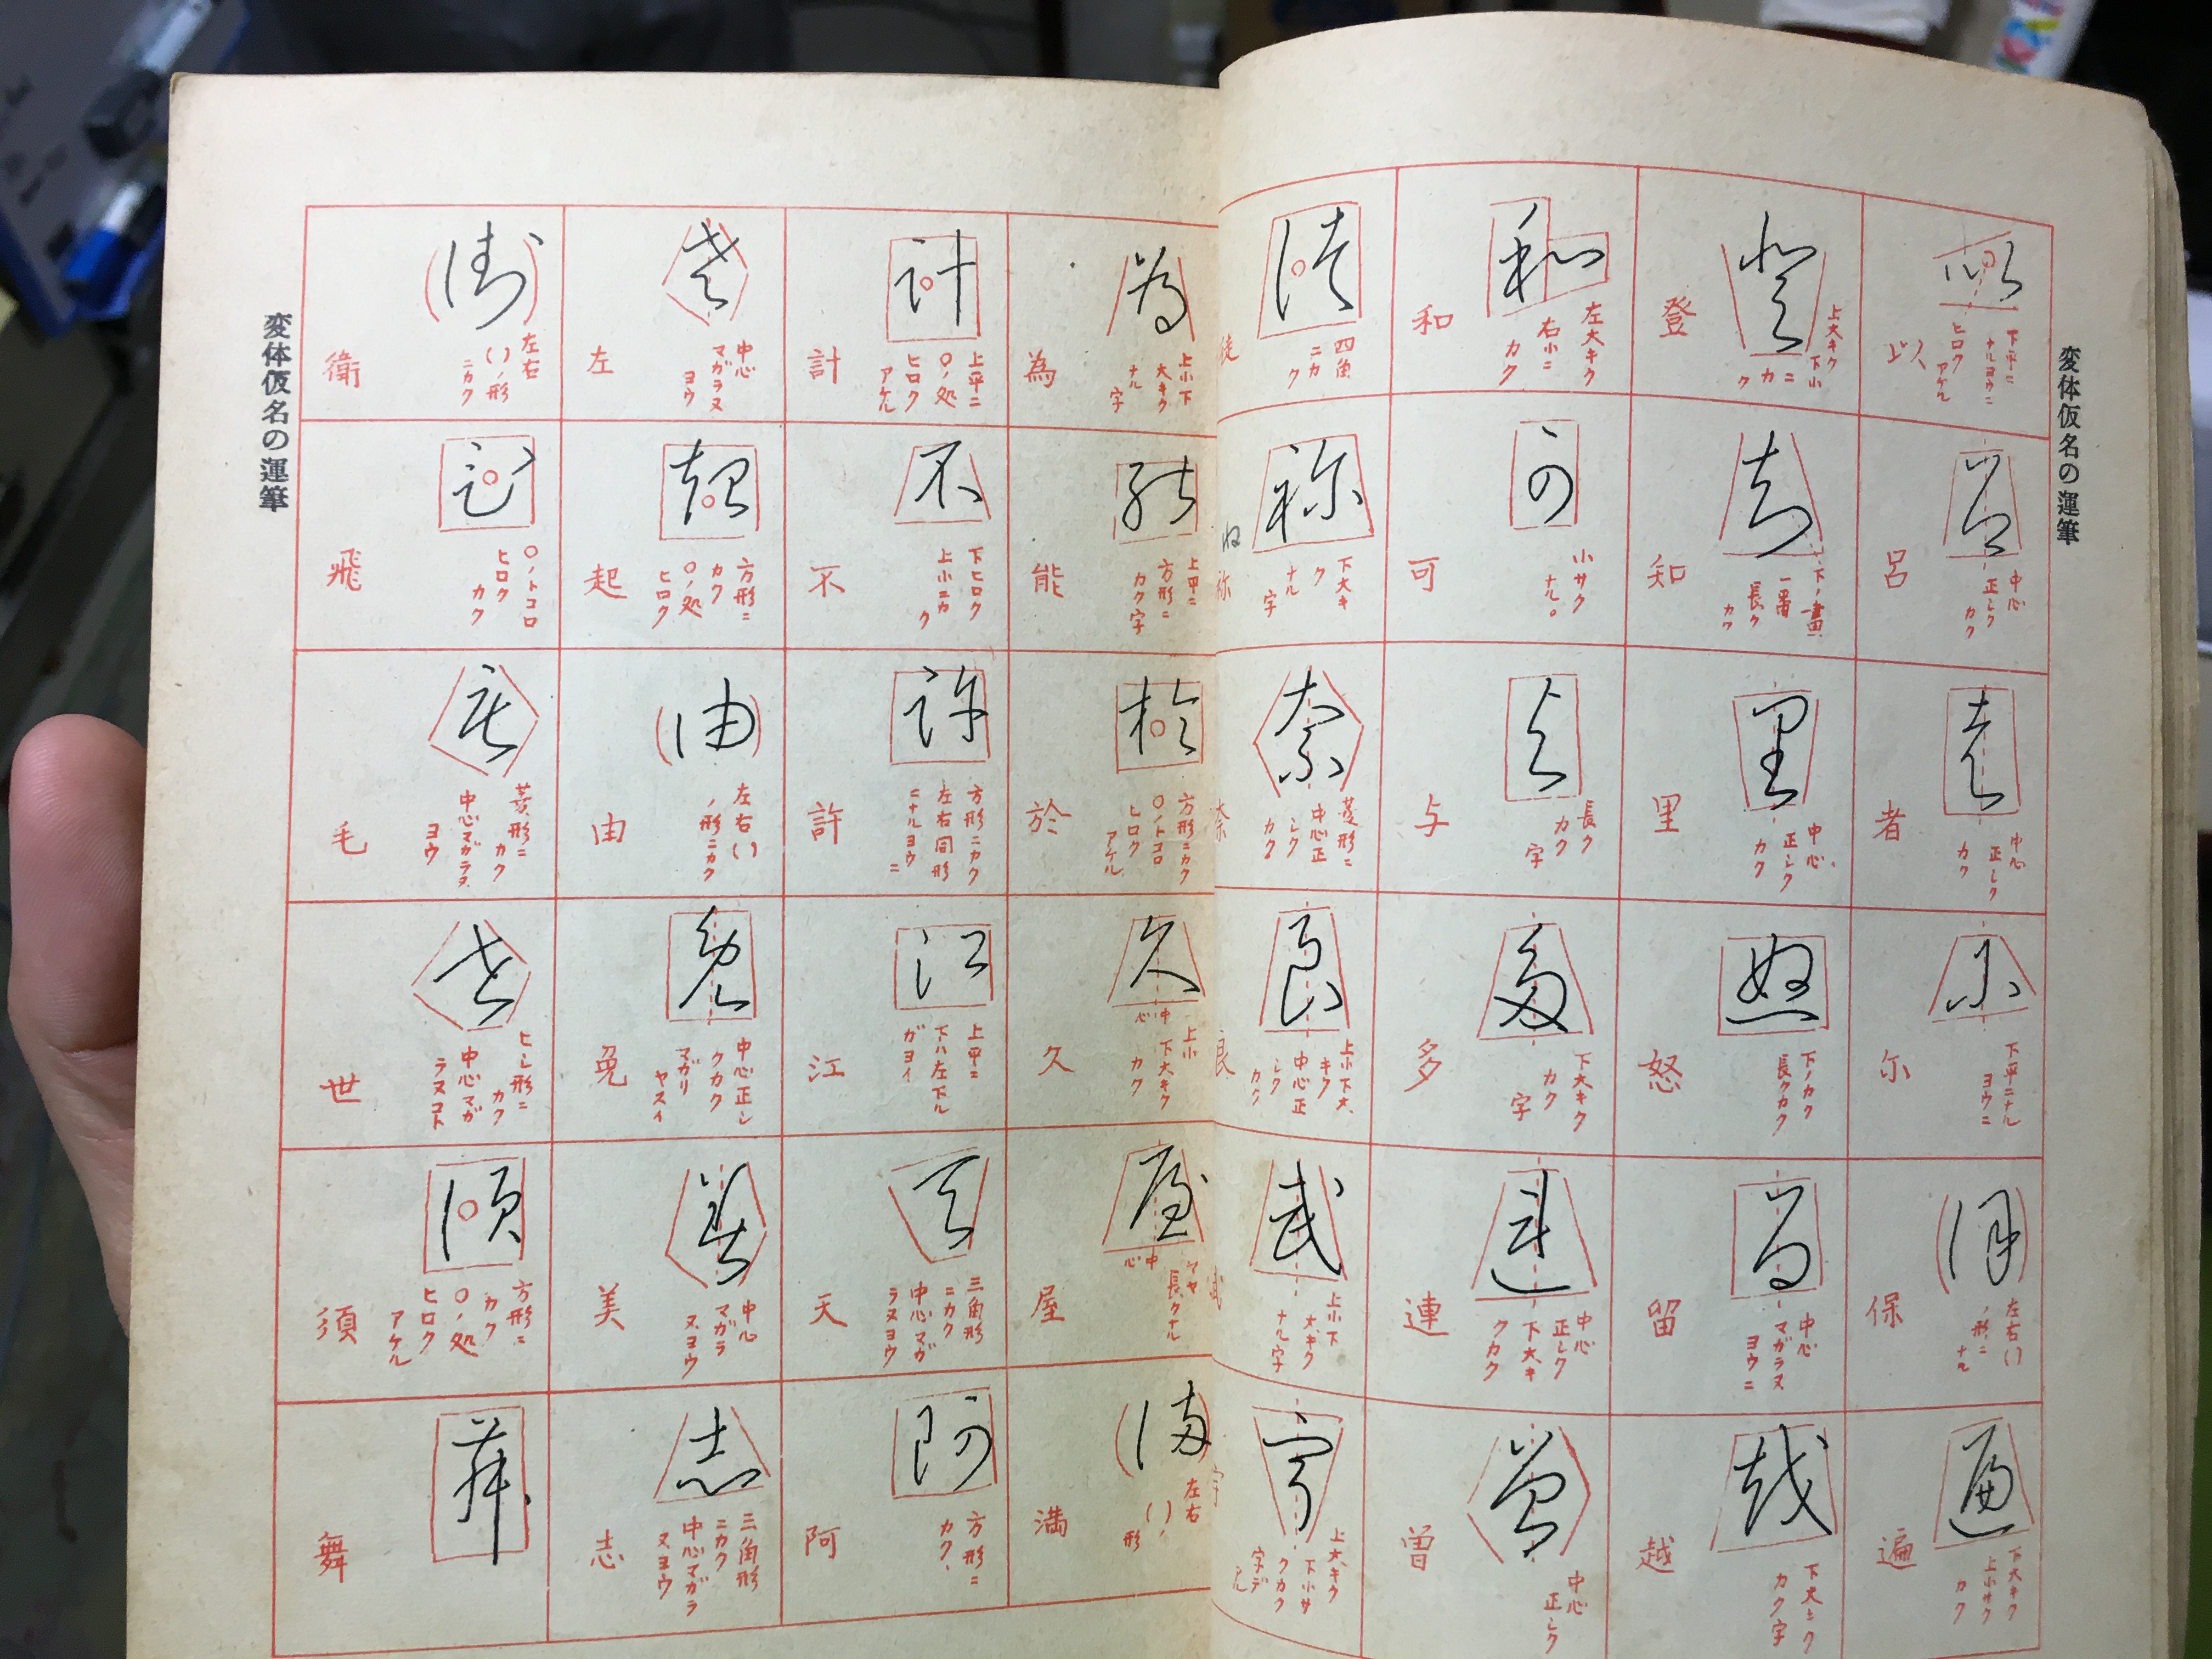 変体仮名の運筆
以
下平ニ
ナルヨウニ
ヒロク
アケル
呂
中心
正シク
カク
者
中心
正シク
カク
尓
下平ニナル
ヨウニ
保
左右()
ノ形ニ
ナル
遍
下大キク
上小サク
カク
登
上大キク
下小
ニカ
ク
知
下ノ畫
一番
長ク
カク
里
中心
正シク
カク
怒
下ノカク
長クカク
留
中心
マガラヌ
ヨウニ
越
下大キク
カク字
和
左大キク
右小ニ
カク
可
小サク
ナル。
与
長ク
カク
字
多
下大キク
カク
字
連
中心
正シク
下大キ
クカク
曽
中心
正シク
徒
四角
ニカ
ク
ね
祢
下大キ
ク
ナル
字
奈
菱形ニ
中心正
シク
カク
良
上小下大
キク
中心正
シク
カク
武
上小下
大キク
ナル字
宇
上大キク
下小サ
クカク
字デ
為
上小下
大キク
ナル
字
能
上平ニ
方形ニ
カク字
於
方形ニカク
○ノトコロ
ヒロク
アケル
久
中心
上小
下大キク
カク
屋
中心
長クナル
満
左右
()ノ
形
計
上平ニ
○ノ処
ヒロク
アケル
不
下ヒロク
上小ニカ
ク
許
方形ニカク
左右同形
ニナルヨウ
ニ
江
上平ニ
下ハ左下ル
ガヨイ
天
三角形
ニカク
中心マガ
ラヌヨウ
阿
方形ニ
カク
左
中心
マガラヌ
ヨウ
起
方形ニ
カク
○ノ処
ヒロク
由
左右()
ノ形ニカク
免
中心正シ
クカク
マガリ
ヤスイ
美
中心
マガラ
ヌヨウ
志
三角形
ニカク
中心マガラ
ヌヨウ
衛
左右
()ノ形
ニカク
飛
○ノトコロ
ヒロク
カク
毛
菱形ニ
カク
中心マガラヌ
ヨウ
世
ヒシ形ニ
カク
中心マガ
ラヌコト
須
方形ニ
カク
○ノ処
ヒロク
アケル
舞
変体仮名の運筆